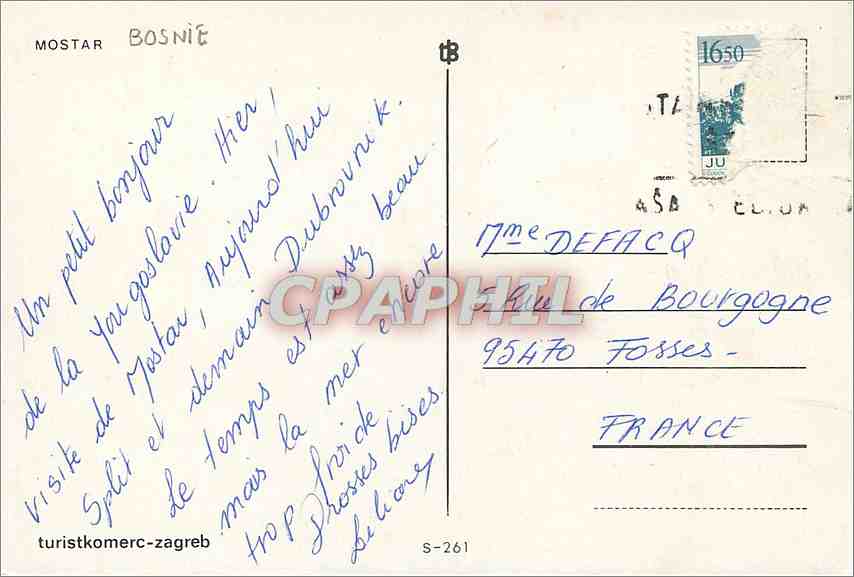 MOSTAR BOSNIE
Un petit bonjour
de la Yougoslavie. Hier,
visite de Mostar, Aujourd'hui
Split et demain Dubrovnik.
Le temps est assez beau
mais la mer encore
trop froide
Grosses bises.
Liliane
turistkomerc-zagreb
S-261
1650
JU
Mme DEFACQ
5 Rue de Bourgogne
95470 Fosses -
FRANCE
CPAPHIL